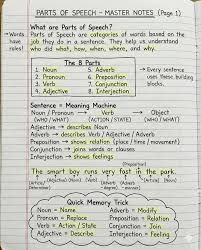 PARTS OF SPEECH – MASTER NOTES (Page 1)
What are Parts of Speech?
Words have roles!
Parts of Speech are categories of words based on the
job they do in a sentence. They help us understand
who did what, how, when, where, and why.
The 8 Parts
1. Noun 5. Adverb
2. Pronoun 6. Preposition
3. Verb 7. Conjunction
4. Adjective 8. Interjection
→ Every sentence
uses these building
blocks.
Sentence = Meaning Machine
Noun / Pronoun → Verb → Object
(WHO / WHAT) (ACTION / STATE) (WHO / WHAT)
Adjective → describes Noun
Adverb → describes Verb / Adjective / Adverb
Preposition → shows relation (place / time / movement)
Conjunction → joins words or clauses
Interjection → shows feelings
(Preposition)
The smart boy runs very fast in the park.
(Adjective) (Noun) (Verb) (Adverb)
Quick Memory Trick
Noun = Name
Adverb = Modify
Pronoun = Replace
Preposition = Relation
Verb = Action / State
Conjunction = Join
Adjective = Describe
Interjection = Feeling